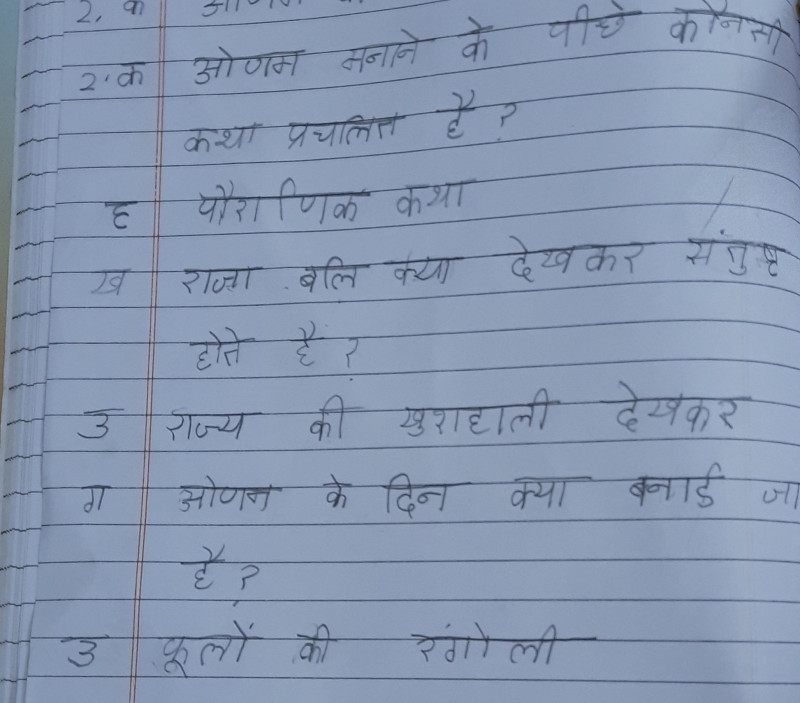 2. क
2.क ओणम मनाने के पीछे कौनसी
कथा प्रचलित है ?
ह पौराणिक कथा
ख राजा बलि क्या देखकर संतुष्ट
होते है ?
उ राज्य की खुशहाली देखकर
ग ओणम के दिन क्या बनाई जा
है ?
उ फूलों की रंगोली